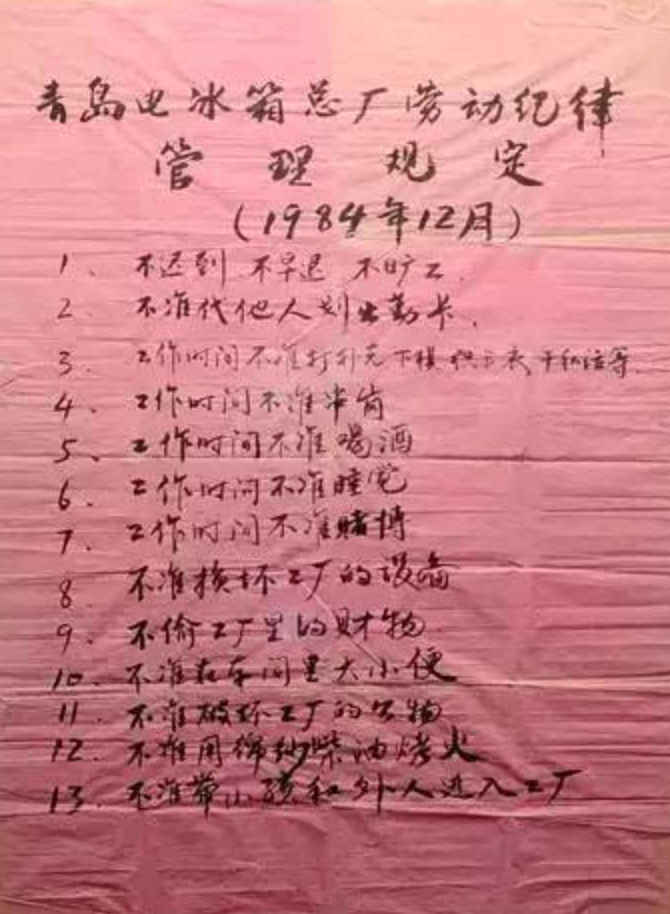 青岛电冰箱总厂劳动纪律
管理规定
(1984年12月)
1、不迟到 不早退 不旷工.
2、不准代他人划出勤卡.
3、工作时间不准打扑克下棋织毛衣干私活等.
4、工作时间不准串岗
5、工作时间不准喝酒
6、工作时间不准睡觉
7、工作时间不准赌博
8、不准损坏工厂的设备
9、不偷工厂里的财物.
10、不准在车间里大小便
11、不准破坏工厂的公物
12、不准用棉纱柴油烤火
13、不准带小孩和外人进入工厂